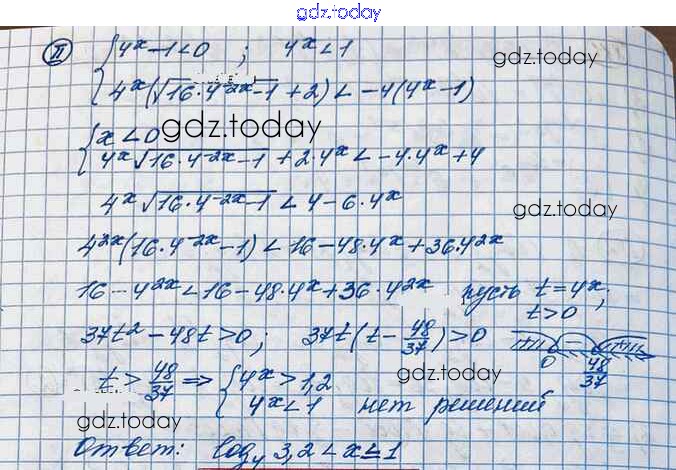 gdz.today
II) { 4^x - 1 < 0 ; 4^x < 1
gdz.today
4^x(√(16·4^(-2x) - 1) + 2) < -4(4^x - 1)
{ x < 0
gdz.today
4^x √(16·4^(-2x) - 1) + 2·4^x < -4·4^x + 4
4^x √(16·4^(-2x) - 1) < 4 - 6·4^x
gdz.today
4^(2x)(16·4^(-2x) - 1) < 16 - 48·4^x + 36·4^(2x)
16 - 4^(2x) < 16 - 48·4^x + 36·4^(2x) пусть t = 4^x;
t > 0
37t² - 48t > 0; 37t(t - 48/37) > 0
0 48/37
t > 48/37 => { 4^x > 1,2
gdz.today
4^x < 1 нет решений
gdz.today
Ответ: log₄ 3,2 < x ≤ 1